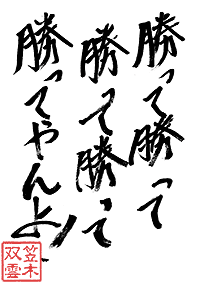 勝って勝って
勝って勝って
勝ってやんよ!
笠木
双雲